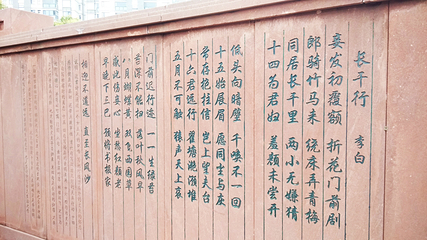 长干行 李白
妾发初覆额 折花门前剧
郎骑竹马来 绕床弄青梅
同居长干里 两小无嫌猜
十四为君妇 羞颜未尝开
低头向暗壁 千唤不一回
十五始展眉 愿同尘与灰
常存抱柱信 岂上望夫台
十六君远行 瞿塘滟滪堆
五月不可触 猿声天上哀
门前迟行迹 一一生绿苔
苔深不能扫 落叶秋风早
八月蝴蝶黄 双飞西园草
感此伤妾心 坐愁红颜老
早晚下三巴 预将书报家
相迎不道远 直至长风沙